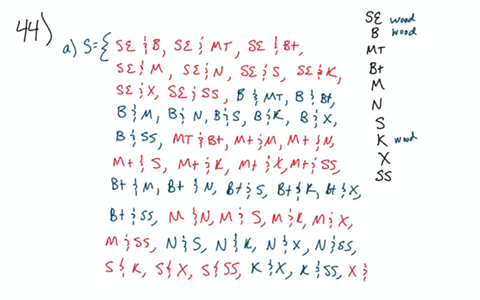 44)
a) S={ SE & B, SE & MT, SE & Bt,
SE & M, SE & N, SE & S, SE & K,
SE & X, SE & SS, B & MT, B & Bt,
B & M, B & N, B & S, B & K, B & X,
B & SS, MT & Bt, Mt & M, Mt & N,
Mt & S, Mt & K, Mt & X, Mt & SS,
Bt & M, Bt & N, Bt & S, Bt & K, Bt & X,
Bt & SS, M & N, M & S, M & K, M & X,
M & SS, N & S, N & K, N & X, N & SS,
S & K, S & X, S & SS, K & X, K & SS, X &
SE wood
B wood
MT
Bt
M
N
S
K wood
X
SS